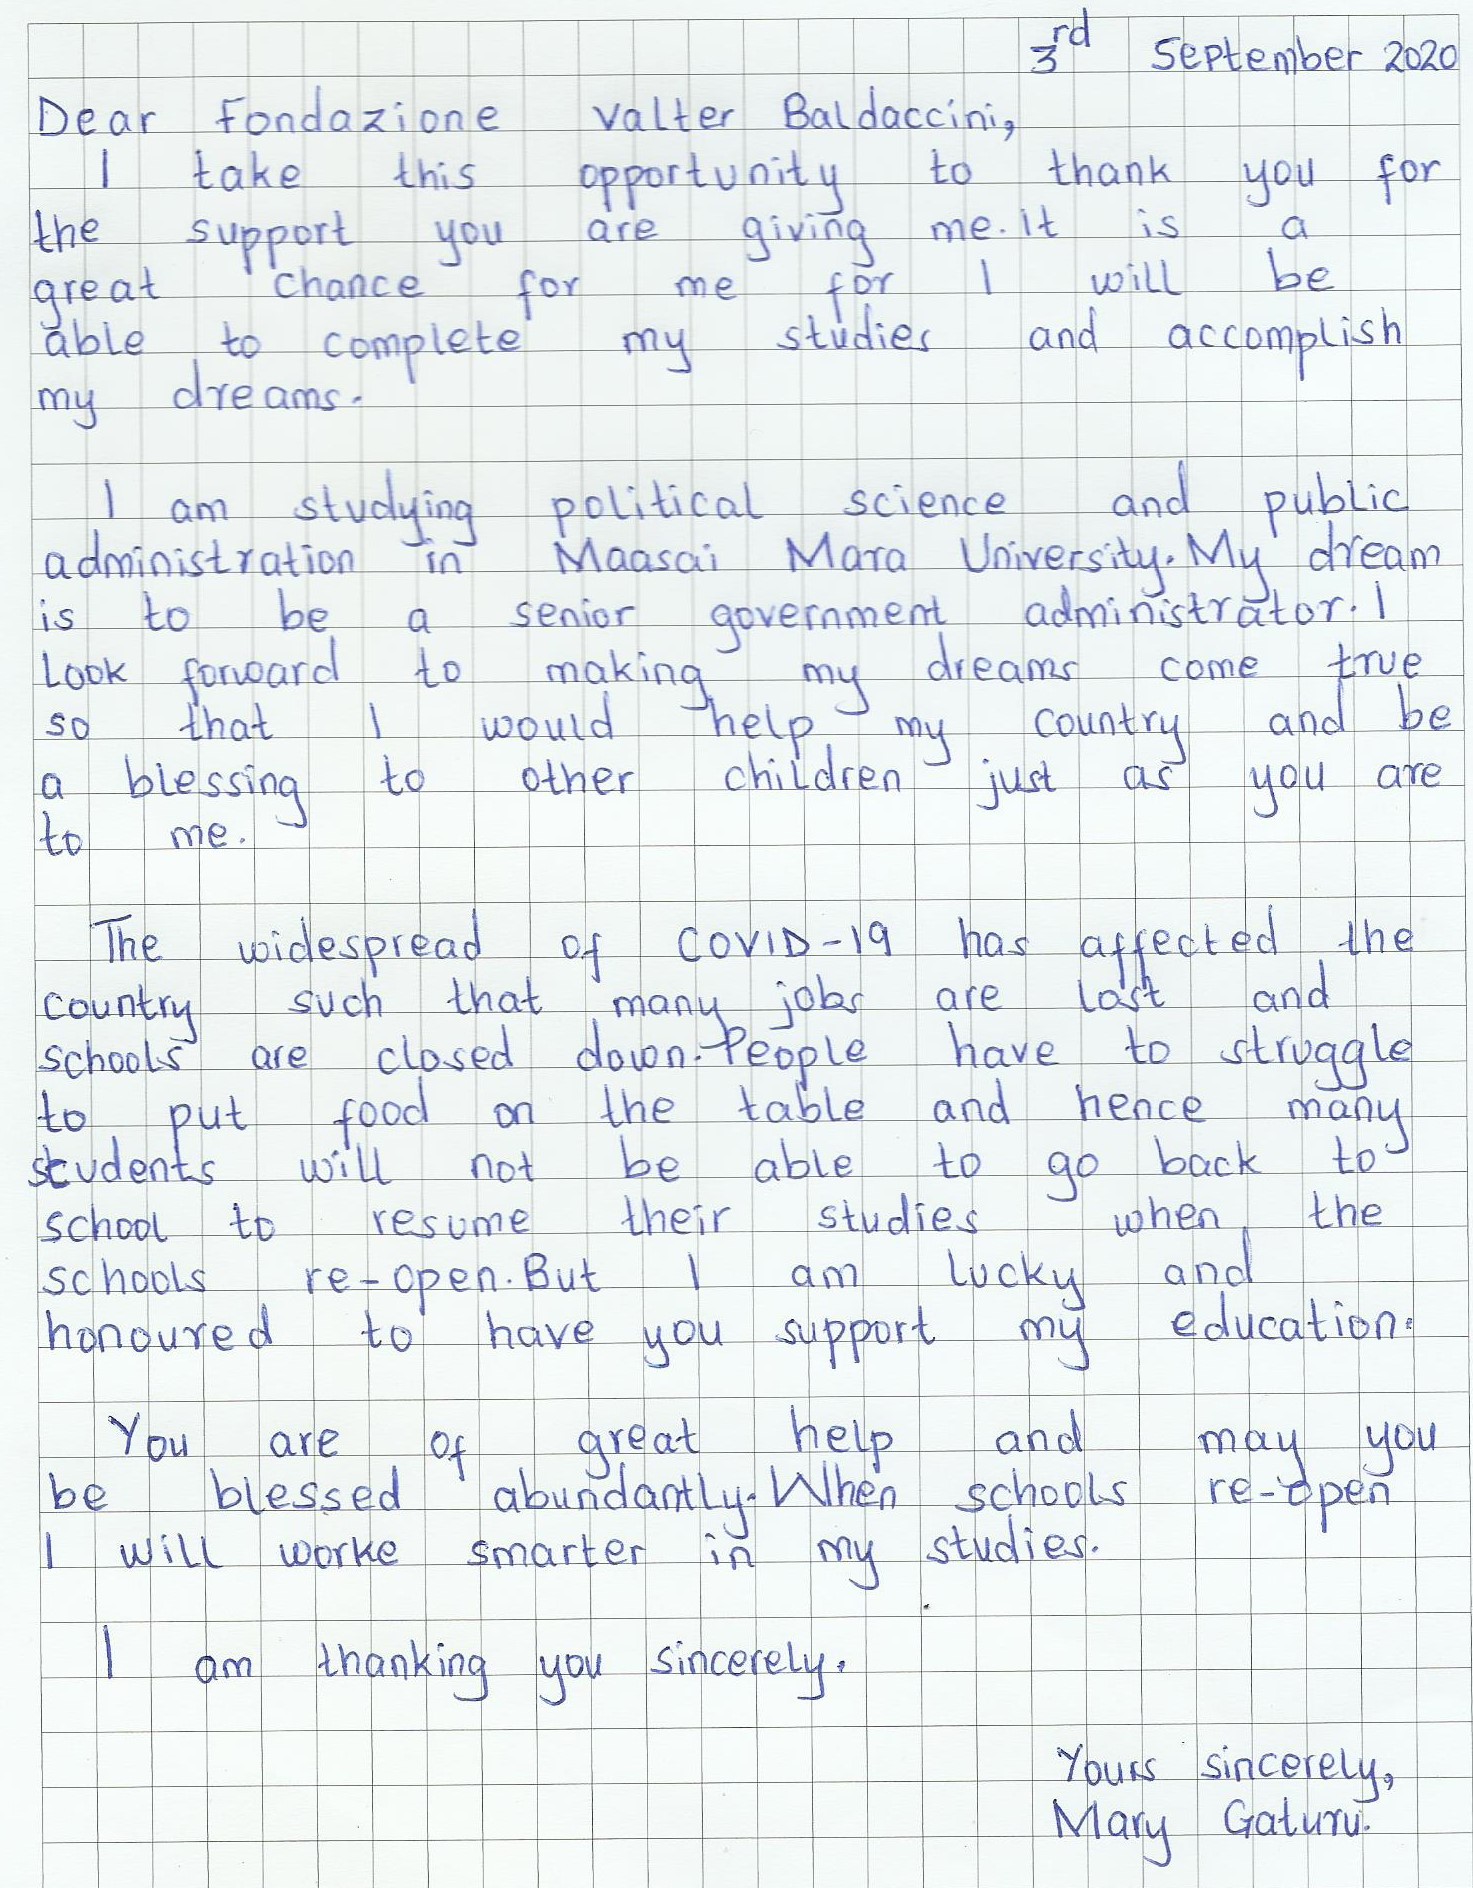 3rd September 2020
Dear Fondazione Valter Baldaccini,
I take this opportunity to thank you for
the support you are giving me. It is a
great chance for me for I will be
able to complete my studies and accomplish
my dreams.
I am studying political science and public
administration in Maasai Mara University. My dream
is to be a senior government administrator. I
Look forward to making my dreams come true
so that I would help my country and be
a blessing to other children just as you are
to me.
The widespread of COVID-19 has affected the
country such that many jobs are lost and
schools are closed down. People have to struggle
to put food on the table and hence many
students will not be able to go back to
school to resume their studies when the
schools re-open. But I am lucky and
honoured to have you support my education.
You are of great help and may you
be blessed abundantly. When schools re-open
I will worke smarter in my studies.
I am thanking you sincerely.
Yours sincerely,
Mary Gaturu.